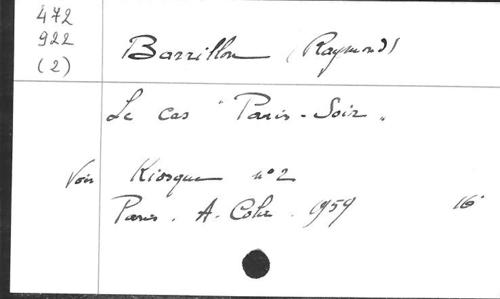 472
922
(2)
Barrillon (Raymond)
Le cas "Paris-Soir"
Voir Kiosque n°2
Paris. A. Colin. 1959 16°